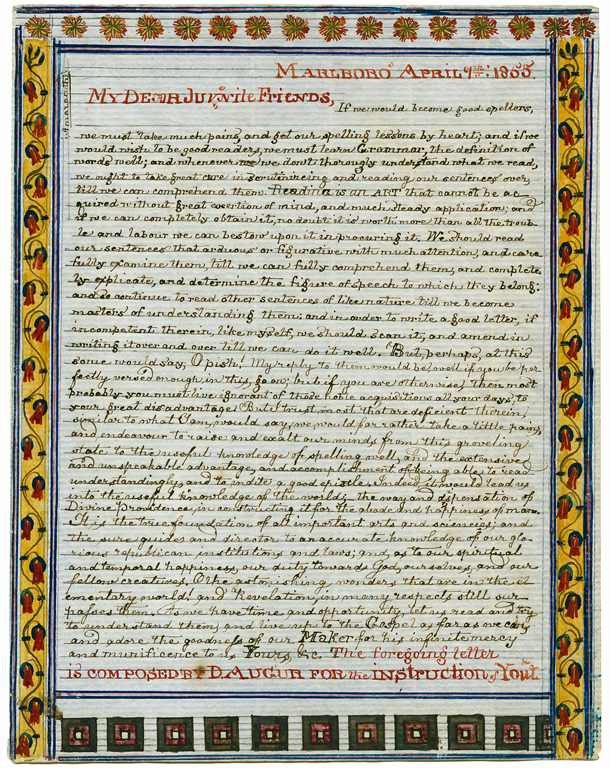 MARLBORO' APRIL 7th: 1855.
Amaranth
MY DEAR JUVENILE FRIENDS,
If we would become good spellers,
we must take much pains, and get our spelling lessons by heart; and if we
would wish to be good readers, we must learn Grammar, the definition of
words well; and whenever we don't thorougly understand what we read,
we ought to take great care in scrutinizing and reading our sentences over,
till we can comprehend them. Reading is an ART that cannot be ac
quired without great exertion of mind, and much steady application; and
if we can completely obtain it, no doubt it is worth more than all the troub
le and labour we can bestow upon it in procuring it. We should read
our sentences that arduous or figurative with much attention, and care
fully examine them, till we can fully comprehend them, and complete
ly explicate, and determine the figure of speech to which they belong;
and so continue to read other sentences of like nature till we become
masters of understanding them: and in order to write a good letter, if
incompetent therein, like myself, we should scan it, and amend in
writing it over and over till we can do it well. But, perhaps, at this
some would say, O pish! My reply to them would be, well if you be per
fectly versed enough in this, go on; but if you are otherwise, then most
probably you must live ignorant of those noble acquisitions all your days, to
your great disadvantage. But I trust, most that are deficient therein,
similar to what I am, would say, we would far rather take a little pains,
and endeavour to raise and exalt our minds from this groveling
state to the useful knowledge of spelling well, and the extensive
and unspeakable advantage, and accomplishment of being able to read
understandingly, and to indite a good epistle. Indeed, it would lead us
into the useful knowledge of the world; the way and dispensation of
Divine Providence, in constructing it for the abode and happiness of man.
It is the true foundation of all important arts and sciences; and
the sure guide and director to an accurate knowledge of our glo-
rious republican institutions and laws; and, as to our spiritual
and temporal happiness, our duty towards God, ourselves, and our
fellow creatives. O the astonishing wonders that are in the el
ementary world! and Revelation, in many respects still sur
passes them. As we have time and opportunity let us read and try
to understand them, and live up to the Gospel as far as we can,
and adore the goodness of our Maker for his infinite mercy
and munificence to us Yours, &c. The foregoing letter
IS COMPOSED BY D. AUGUR FOR the INSTRUCTION of Youth.